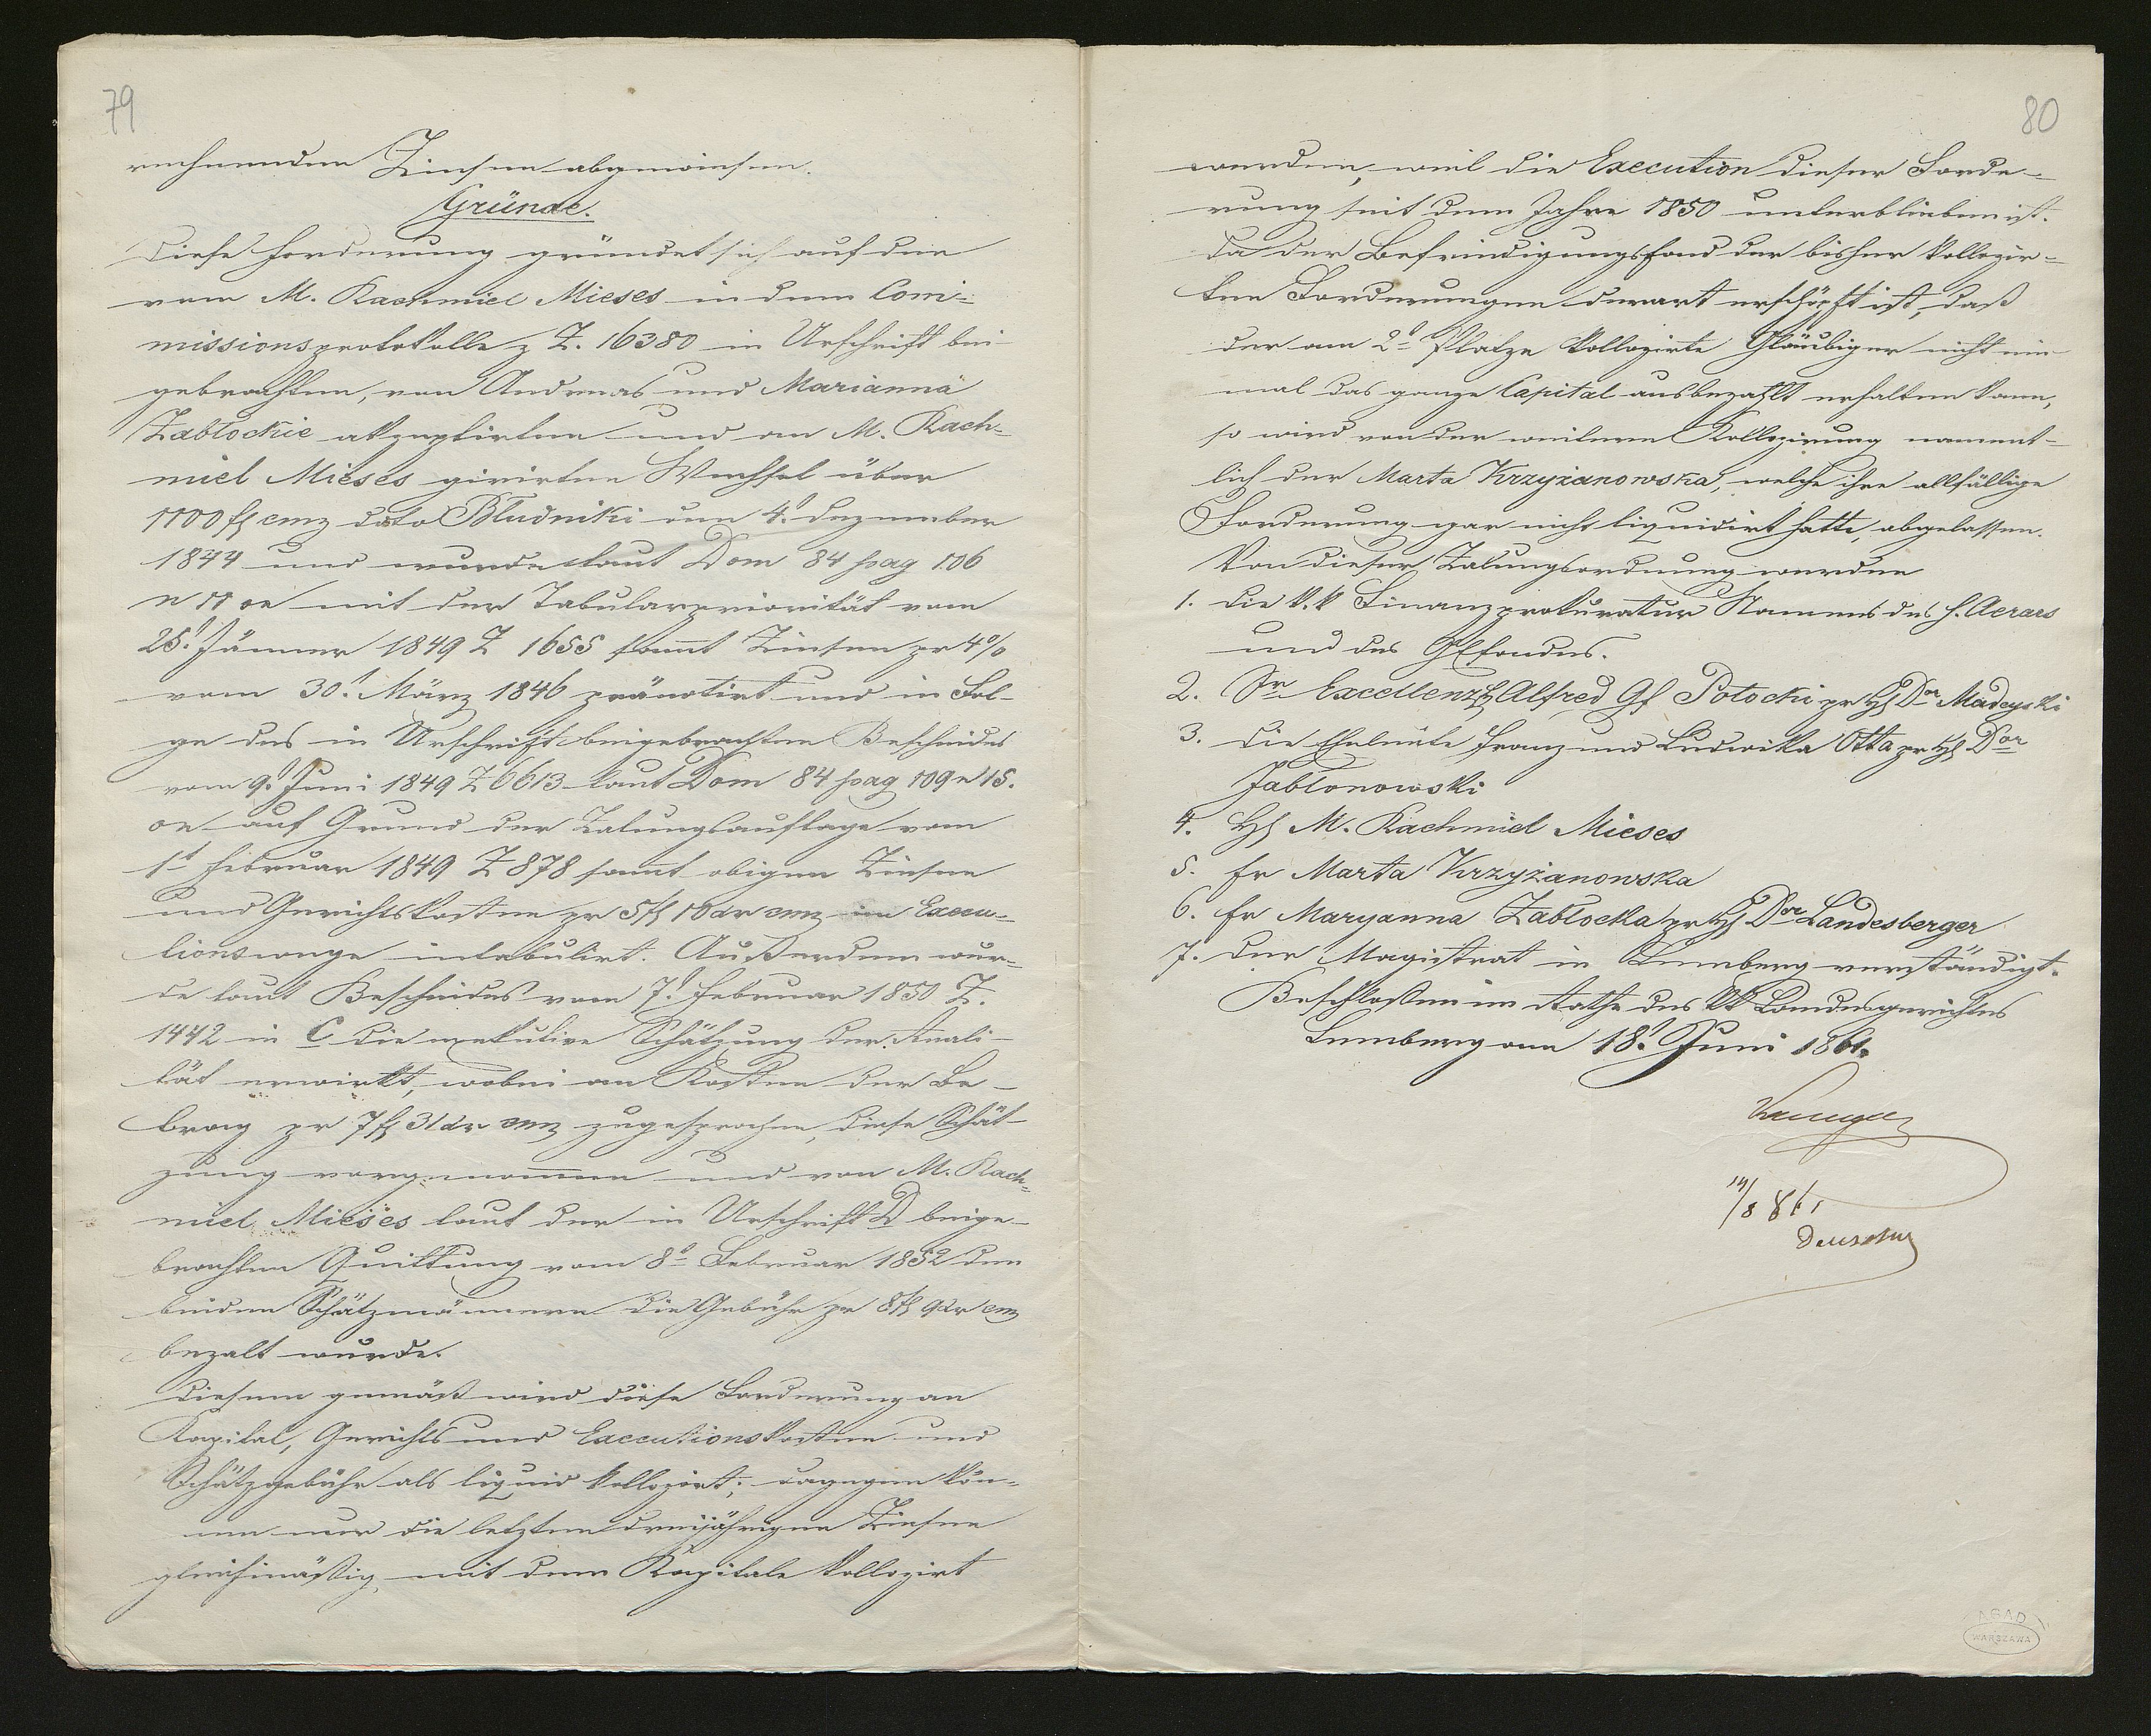 79
rechnenden Zinsen abgewiesen.
Gründe.
Diese Forderung gründet sich auf den
vom M. Rachmiel Mieses in dem Com-
missionsprotokolle z Z. 16380 in Urschrift bei-
gebrachten, von Andreas und Marianna
Zabłockie akzeptirten und an M. Rach-
miel Mieses girirten Wechsel über
1100 f cmz dato Błudniki den 4t Dezember
1844 und wurde laut Dom 84 pag 106
n 11 on mit der Tabularpriorität vom
25t Jänner 1849 Z 1655 sammt Zinsen pr 4%
vom 30t März 1846 pränotirt und in Fol-
ge des in Urschrift beigebrachten Bescheides
vom 9t Juni 1849 Z 6613 laut Dom 84 pag 109 n 15.
on auf Grund der Zalungsauflage vom
1t Februar 1849 Z 878 sammt obigen Zinsen
und Gerichtskosten pr 5 f 10 xr cmz im Execu-
tionswege intabulirt. Außerdem wur-
de laut Bescheides vom 7t Februar 1850 Z.
1442 in C die exekutive Schätzung der Reali-
tät erwirkt, wobei an Kosten der Be-
trag pr 7 f 31 xr cmz zugesprochen, diese Schät-
zung vorgenommen und von M. Rach-
miel Mieses laut der in Urschrift D beige-
brachten Quittung vom 8t Februar 1852 den
beiden Schätzmännern die Gebühr pr 8 f 9 xr cmz
bezalt wurde.
Diesem gemäß wird diese Forderung an
Kapital, Gerichts und Executionskosten und
Schätzgebühr als liquid kollozirt; dagegen kön-
nen nur die letzten dreijährigen Zinsen
gleichmäßig mit dem Kapitale kollozirt
80
werden, weil die Execution dieser Forde-
rung seit dem Jahre 1850 unterblieben ist.
Da der Befriedigungsfond der bisher kollozir-
ten Forderungen derart erschöpft ist, daß
der am 2t Platze kollozirte Gläubiger nicht ein-
mal das ganze Capital ausbezahlt erhalten kann,
so wird von der weiteren Kollozirung nament-
lich der Marta Krzyżanowska, welche ihre allfällige
Forderung gar nicht liquidirt hatte, abgelassen.
Von dieser Zalungsordnung werden
1. die k.k Finanzprokuratur Namens des h. Aerars
und des GEfondes.
2. Sr Excellenz H Alfred Gf Potocki pr H Dor Madeyski
3. die Eheleute Franz und Ludwika Otta pr H Dor
Jabłonowski
4. H M. Rachmiel Mieses
5. Fr Marta Krzyżanowska
6. Fr Maryanna Zabłocka pr H Dor Landesberger
7. der Magistrat in Lemberg verständigt.
Beschloßen im Rathe des kk Landesgerichtes
Lemberg am 18t Juni 1861.
14/8 861
AGAD
WARSZAWA